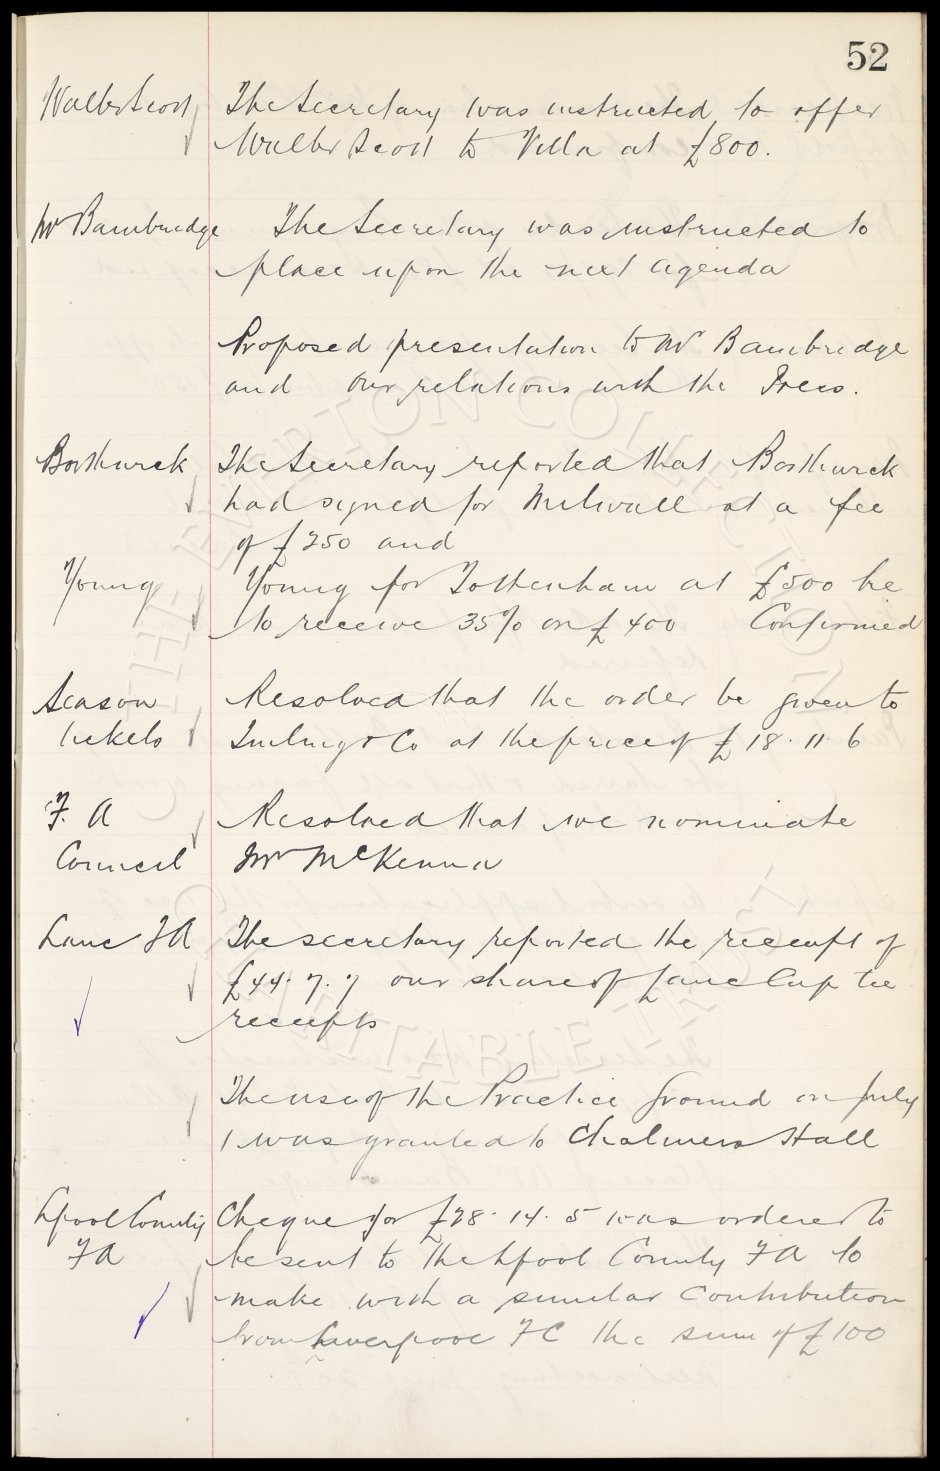 52
Walter Scott The Secretary was instructed to offer
Walter Scott to Villa at £800.
Mr Bambridge The Secretary was instructed to
place upon the next agenda
Proposed presentation to Mr Bambridge
and our relations with the Press.
Borthwick The Secretary reported that Borthwick
had signed for Millwall at a fee
of £250 and
Young Young for Tottenham at £500 he
to receive 35% on £400 Confirmed
Season Resolved that the order be given to
tickets & Co at the price of £18.11.6
F. A Resolved that we nominate
Council Mr McKenna
Lanc FA The secretary reported the receipt of
£44.7.7 our share of Lanc Cup tie
receipts
The use of the Practice Ground on July
1 was granted to Chalmers Hall
Lpool County Cheque for £28.14.5 was ordered to
FA be sent to the Lpool County FA to
make with a similar Contribution
from Liverpool FC the sum of £100
THE EVERTON COLLECTION
CHARITABLE TRUST